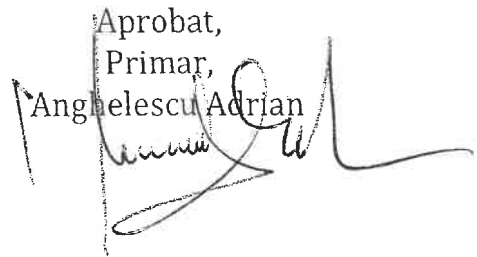 Aprobat,
Primar,
Anghelescu Adrian